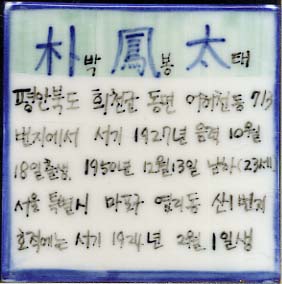 朴박 鳳봉 太태
평안북도 희천군 동면 713
번지에서 서기 1927년 음력 10월
18일출생. 1950년 12月13일 남하(23세)
서울 특별시 마포구 염리동 산1번지
호적에는 서기 1924년 2월 1일생